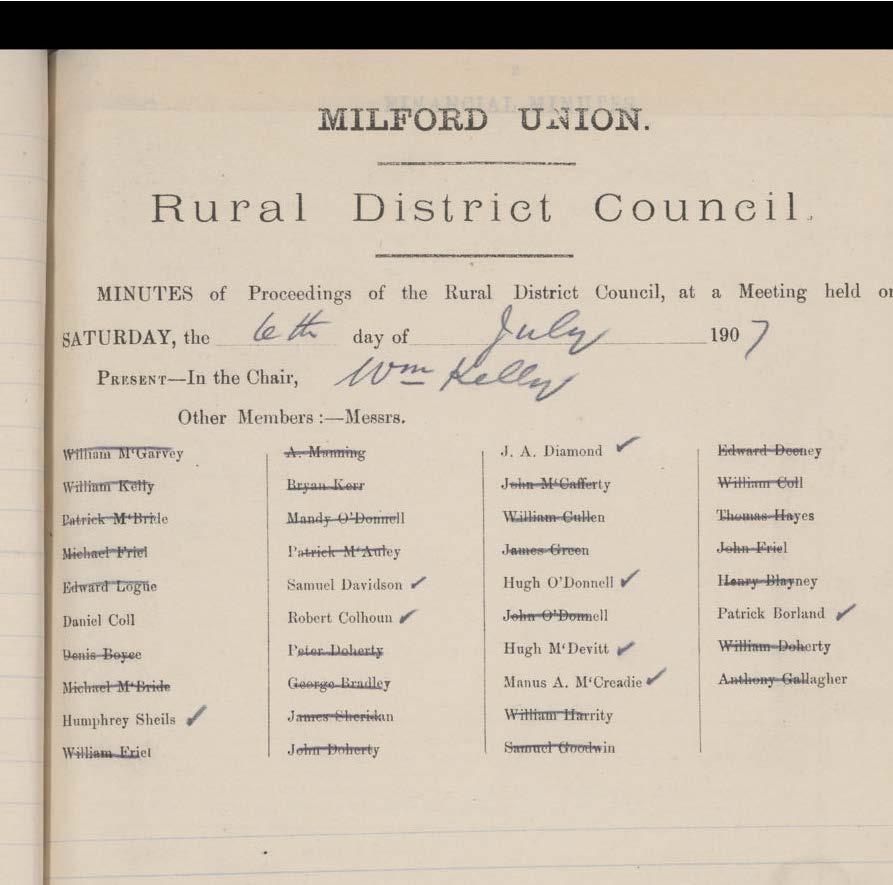 MILFORD UNION.
Rural District Council.
MINUTES of Proceedings of the Rural District Council, at a Meeting held on
SATURDAY, the 6th day of July 1907
PRESENT—In the Chair, Wm Kelly
Other Members :—Messrs.
William M‘Garvey
William Kelly
Patrick M‘Bride
Michael Friel
Edward Logue
Daniel Coll
Denis Boyce
Michael M‘Bride
Humphrey Sheils ✓
William Friel
A. Manning
Bryan Kerr
Mandy O’Donnell
Patrick M‘Auley
Samuel Davidson ✓
Robert Colhoun ✓
Peter Doherty
George Bradley
James Sheridan
John Doherty
J. A. Diamond ✓
John M‘Cafferty
William Cullen
James Green
Hugh O’Donnell ✓
John O’Donnell
Hugh M‘Devitt ✓
Manus A. M‘Creadie ✓
William Harrity
Samuel Goodwin
Edward Deeney
William Coll
Thomas Hayes
John Friel
Henry Blayney
Patrick Borland ✓
William Doherty
Anthony Gallagher